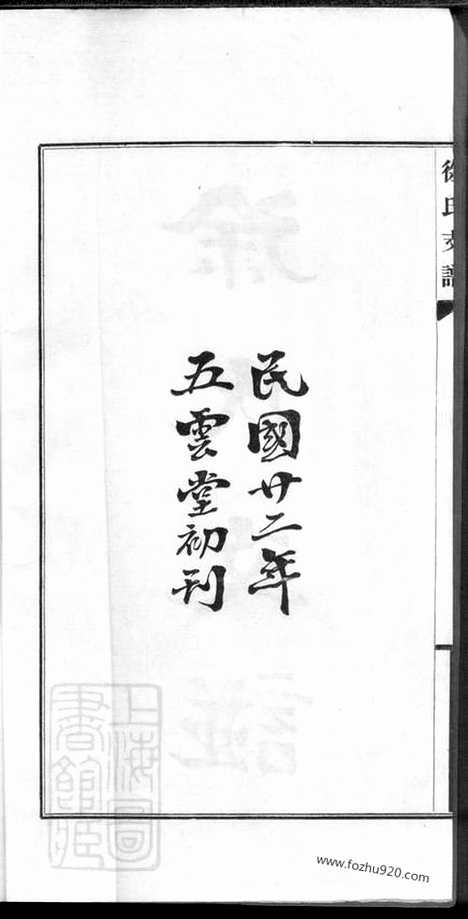 徐氏支譜
民國廿二年
五雲堂初刊
上海圖
書館藏
www.fozhu920.com